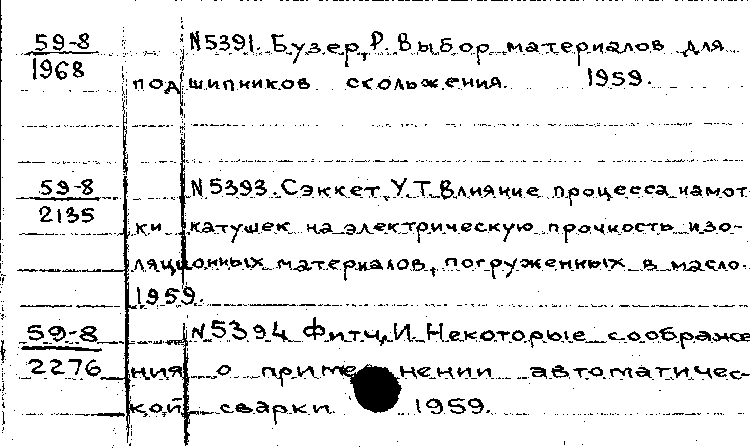 59-8 N5391. Бузер, Р. Выбор материалов для
1968 подшипников скольжения. 1959.
59-8 N5393. Сэккет, У.Т. Влияние процесса намот-
2135 ки катушек на электрическую прочность изо-
ляционных материалов, погруженных в масло.
1959.
59-8 N5394 Фитч, И. Некоторые соображе
2276 ния о приме нении автоматичес-
кой сварки 1959.